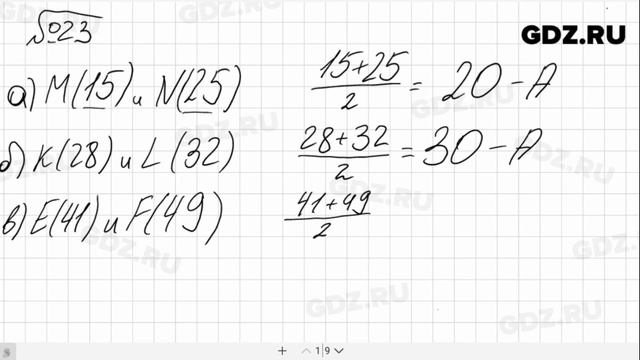 №23
GDZ.RU
а) M(15) и N(25) (15+25)/2 = 20 – A
б) K(28) и L(32) (28+32)/2 = 30 – A
в) E(41) и F(49) (41+49)/2
GDZ.RU
GDZ.RU
GDZ.RU
GDZ.RU
GDZ.RU
GDZ.RU
GDZ.RU
GDZ.RU
1|9